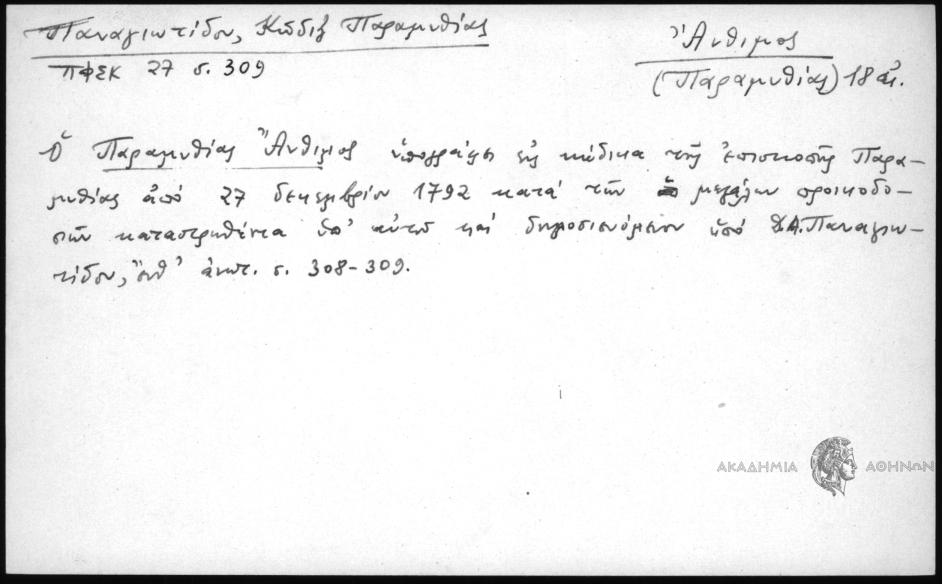 Παναγιωτίδου, Κῶδιξ Παραμυθίας
ΠΦΣΚ 27 σ. 309
Ἄνθιμος
(Παραμυθίας) 18 αἰ.
Ὁ Παραμυθίας Ἄνθιμος ὑπογράφει εἰς κώδικα τῆς ἐπισκοπῆς Παρα-
μυθίας ἀπό 27 δεκεμβρίου 1792 κατά τῶν μεγάλων προικοδο-
σιῶν καταστρωθέντα ὑπ' αὐτοῦ καί δημοσιευόμενον ὑπό Δ.Α. Παναγιω-
τίδου, ἔνθ' ἀνωτ. σ. 308-309.
ΑΚΑΔΗΜΙΑ ΑΘΗΝΩΝ